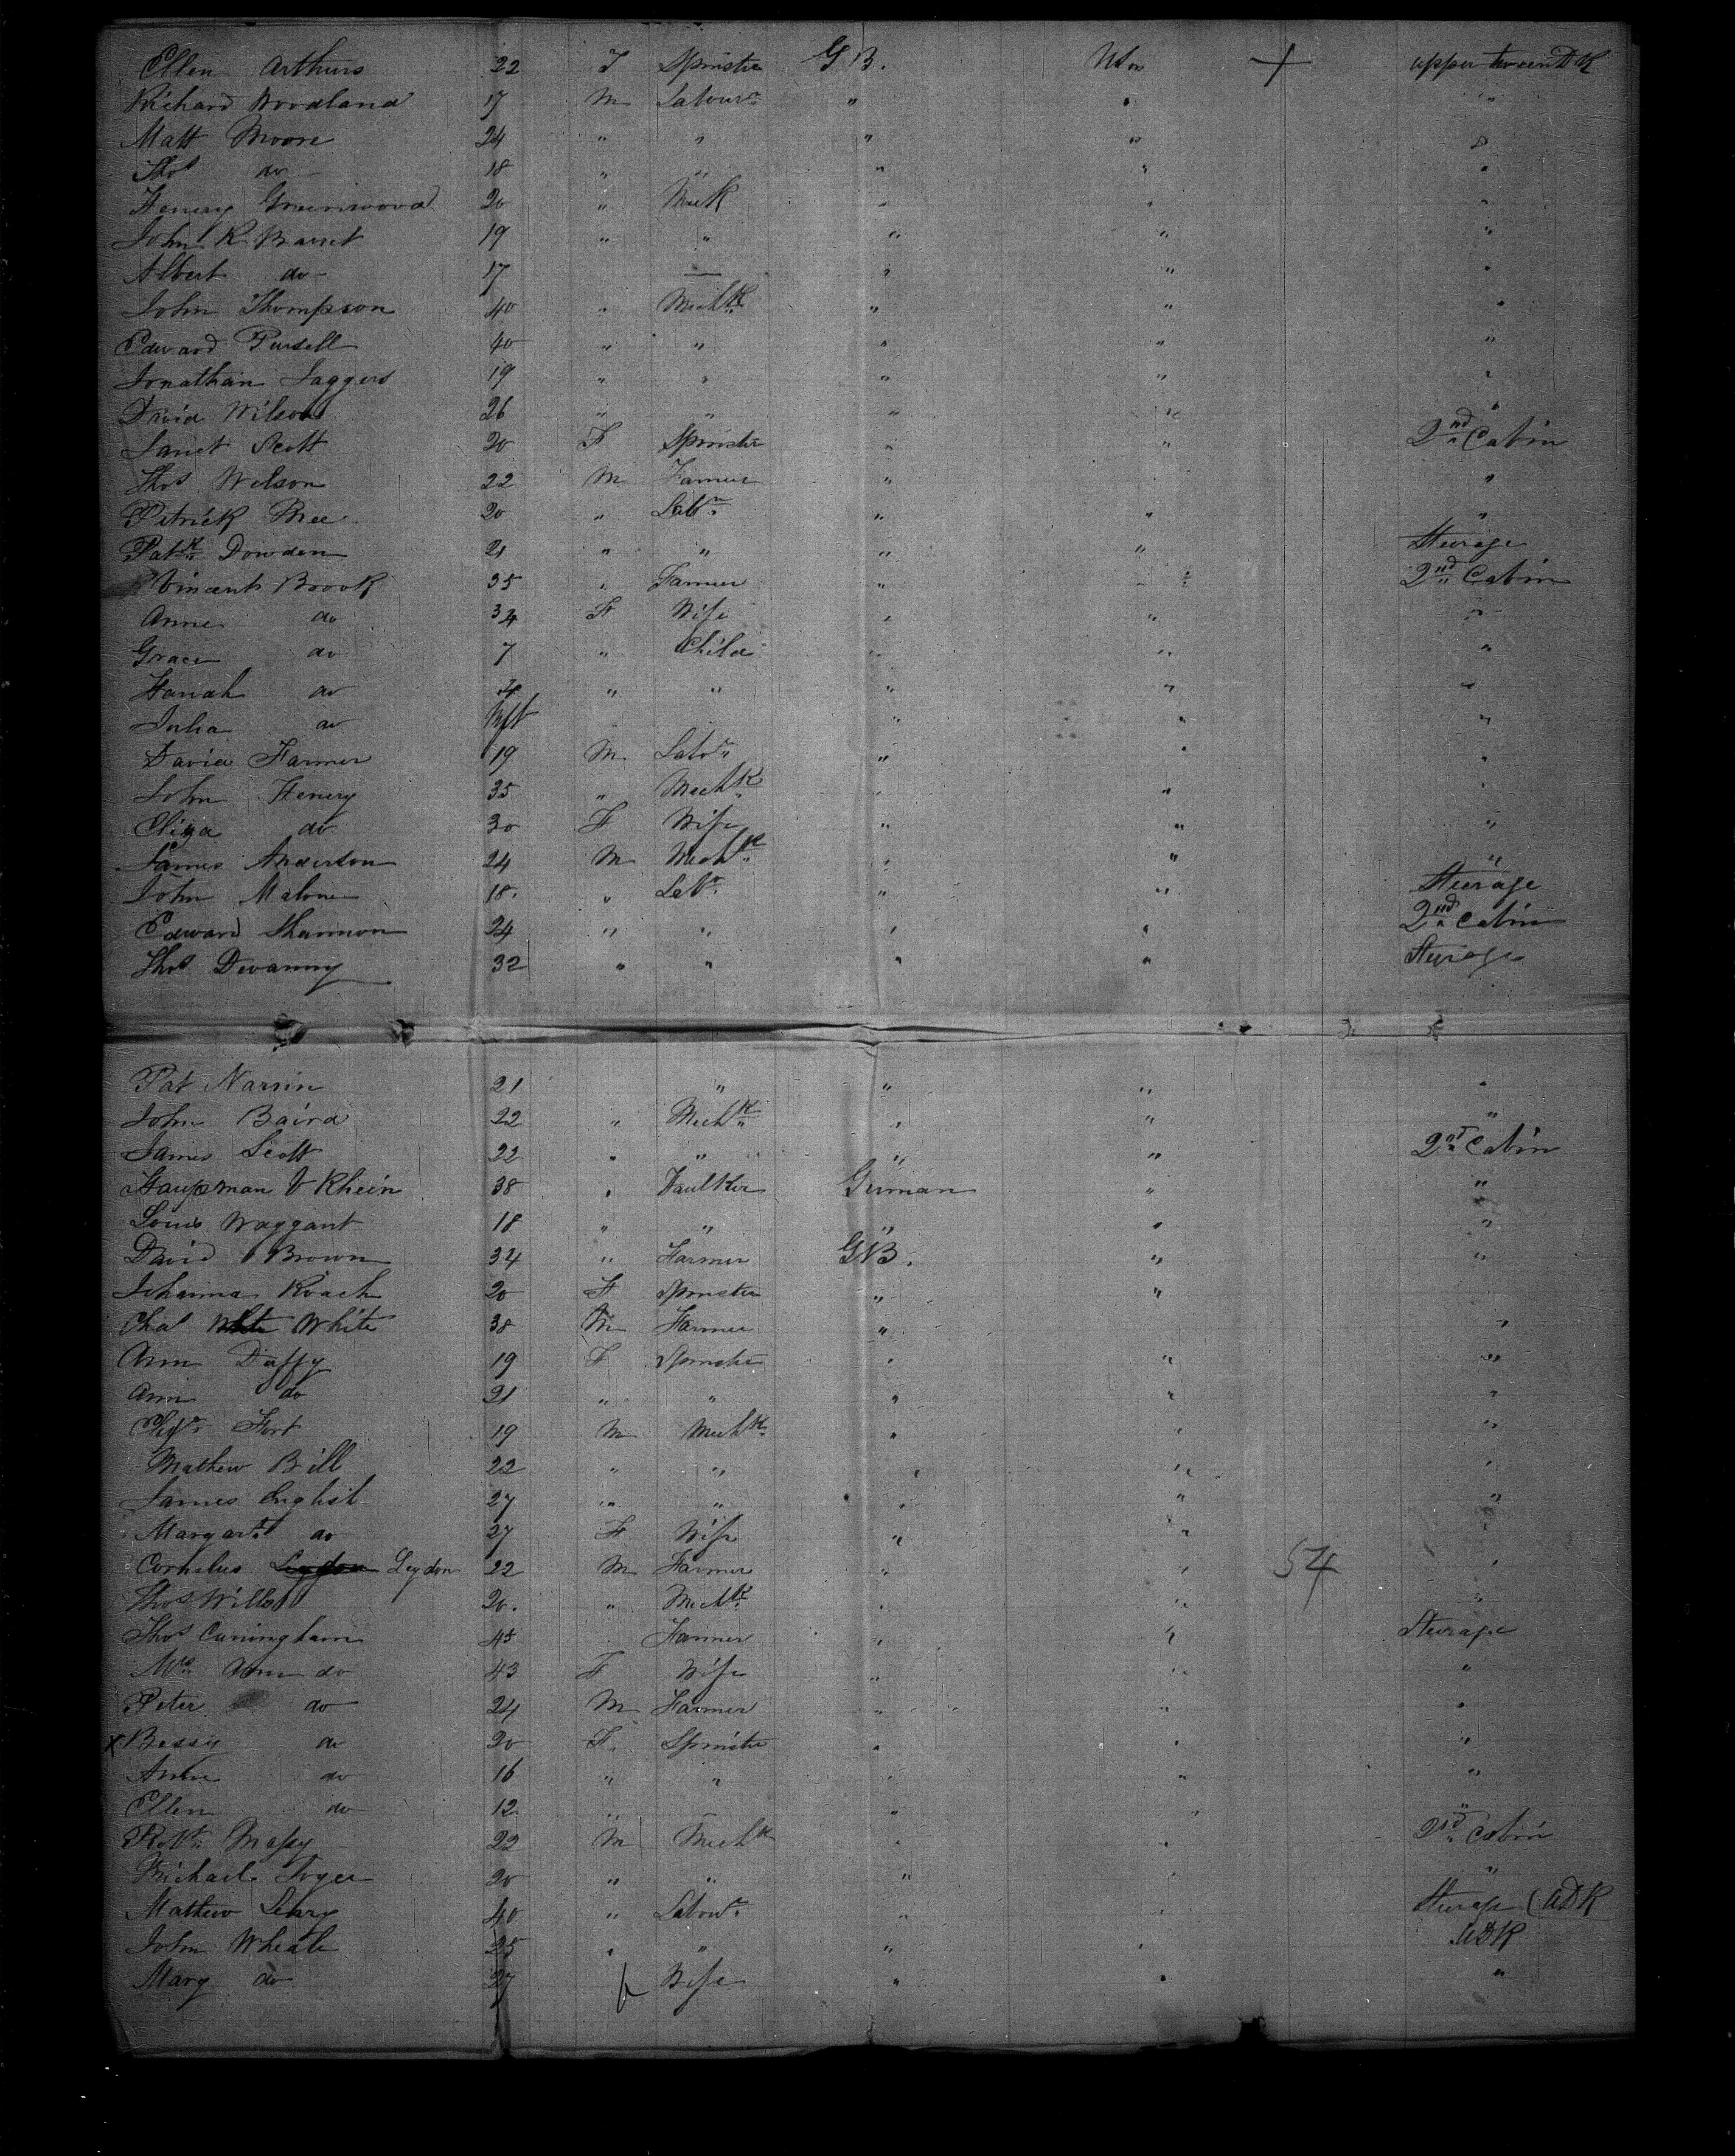 Ellen Arthurs 22 F Spinster G B. US " + upper tween DK
Richard Woodland 17 M Labour " " "
Matt Moore 24 " " " " "
Thos do 18 " " " " "
Henery Greenwood 20 " Meck " " "
John R Barret 19 " " " " "
Albert do 17 — " " "
John Thompson 40 " Mechk " " "
Edward Pursell 40 " " " " "
Jonathan Jaggers 19 " " " " "
David Wilson 26 " " " " "
Janet Scott 20 F Spinster " " 2nd Cabin
Thos Welson 22 M Farmer " " "
Patrick Mee 20 " Labr " " "
Patk Dowden 21 " " " " Sterage
Vincent Brook 35 " Farmer " " 2nd Cabin
Anne do 34 F Wife " " "
Grace do 7 " Child " " "
Hanah do 4 " " " " "
Julia do Inft " " "
David Farmer 19 M Labr " " "
John Henery 35 " Mechk " " "
Eliza do 30 F Wife " " "
James Anderton 24 M Mechk " " "
John Malone 18. " Labr " " Steerage
Edward Shannon 24 " " " " 2nd Cabin
Thos Devanny 32 " " " " Sterage
Pat Narsin 21 " " " "
John Baird 22 " Mechk " " "
James Scott 22 " " " " 2nd Cabin
Haupman V Rhein 38 " German " "
Louis Waggant 18 " " " " "
David Brown 34 " Farmer GB. " "
Johanna Roach 20 F Spinster " "
Chas White 38 M Farmer " "
Ann Daffy 19 F Spinster " " "
Ann do 21 " " " " "
Fort 19 M Mechk " " "
Mathew Bill 22 " " " " "
James English 27 " " " " "
Margart do 27 F Wife " " "
Cornelius Leydon 22 M Farmer " " 54 "
Thos Wills 20. " Mechk " " "
Thos Cuningham 45 Farmer " " Sterage
Mrs Ann do 43 F Wife " " "
Peter do 24 M Farmer " " "
x Bessy do 20 F. Spinster " " "
Anne do 16 " " " " "
Ellen do 12 " " " "
Robt Massy 22 M Mechk " " 2nd Cabin
Michael 20 " " " " "
Mathew Leary 40 " Labour " " Sterage (UDK
John Wheate 25 " " " " UDK
Mary do 27 f Wife " " "